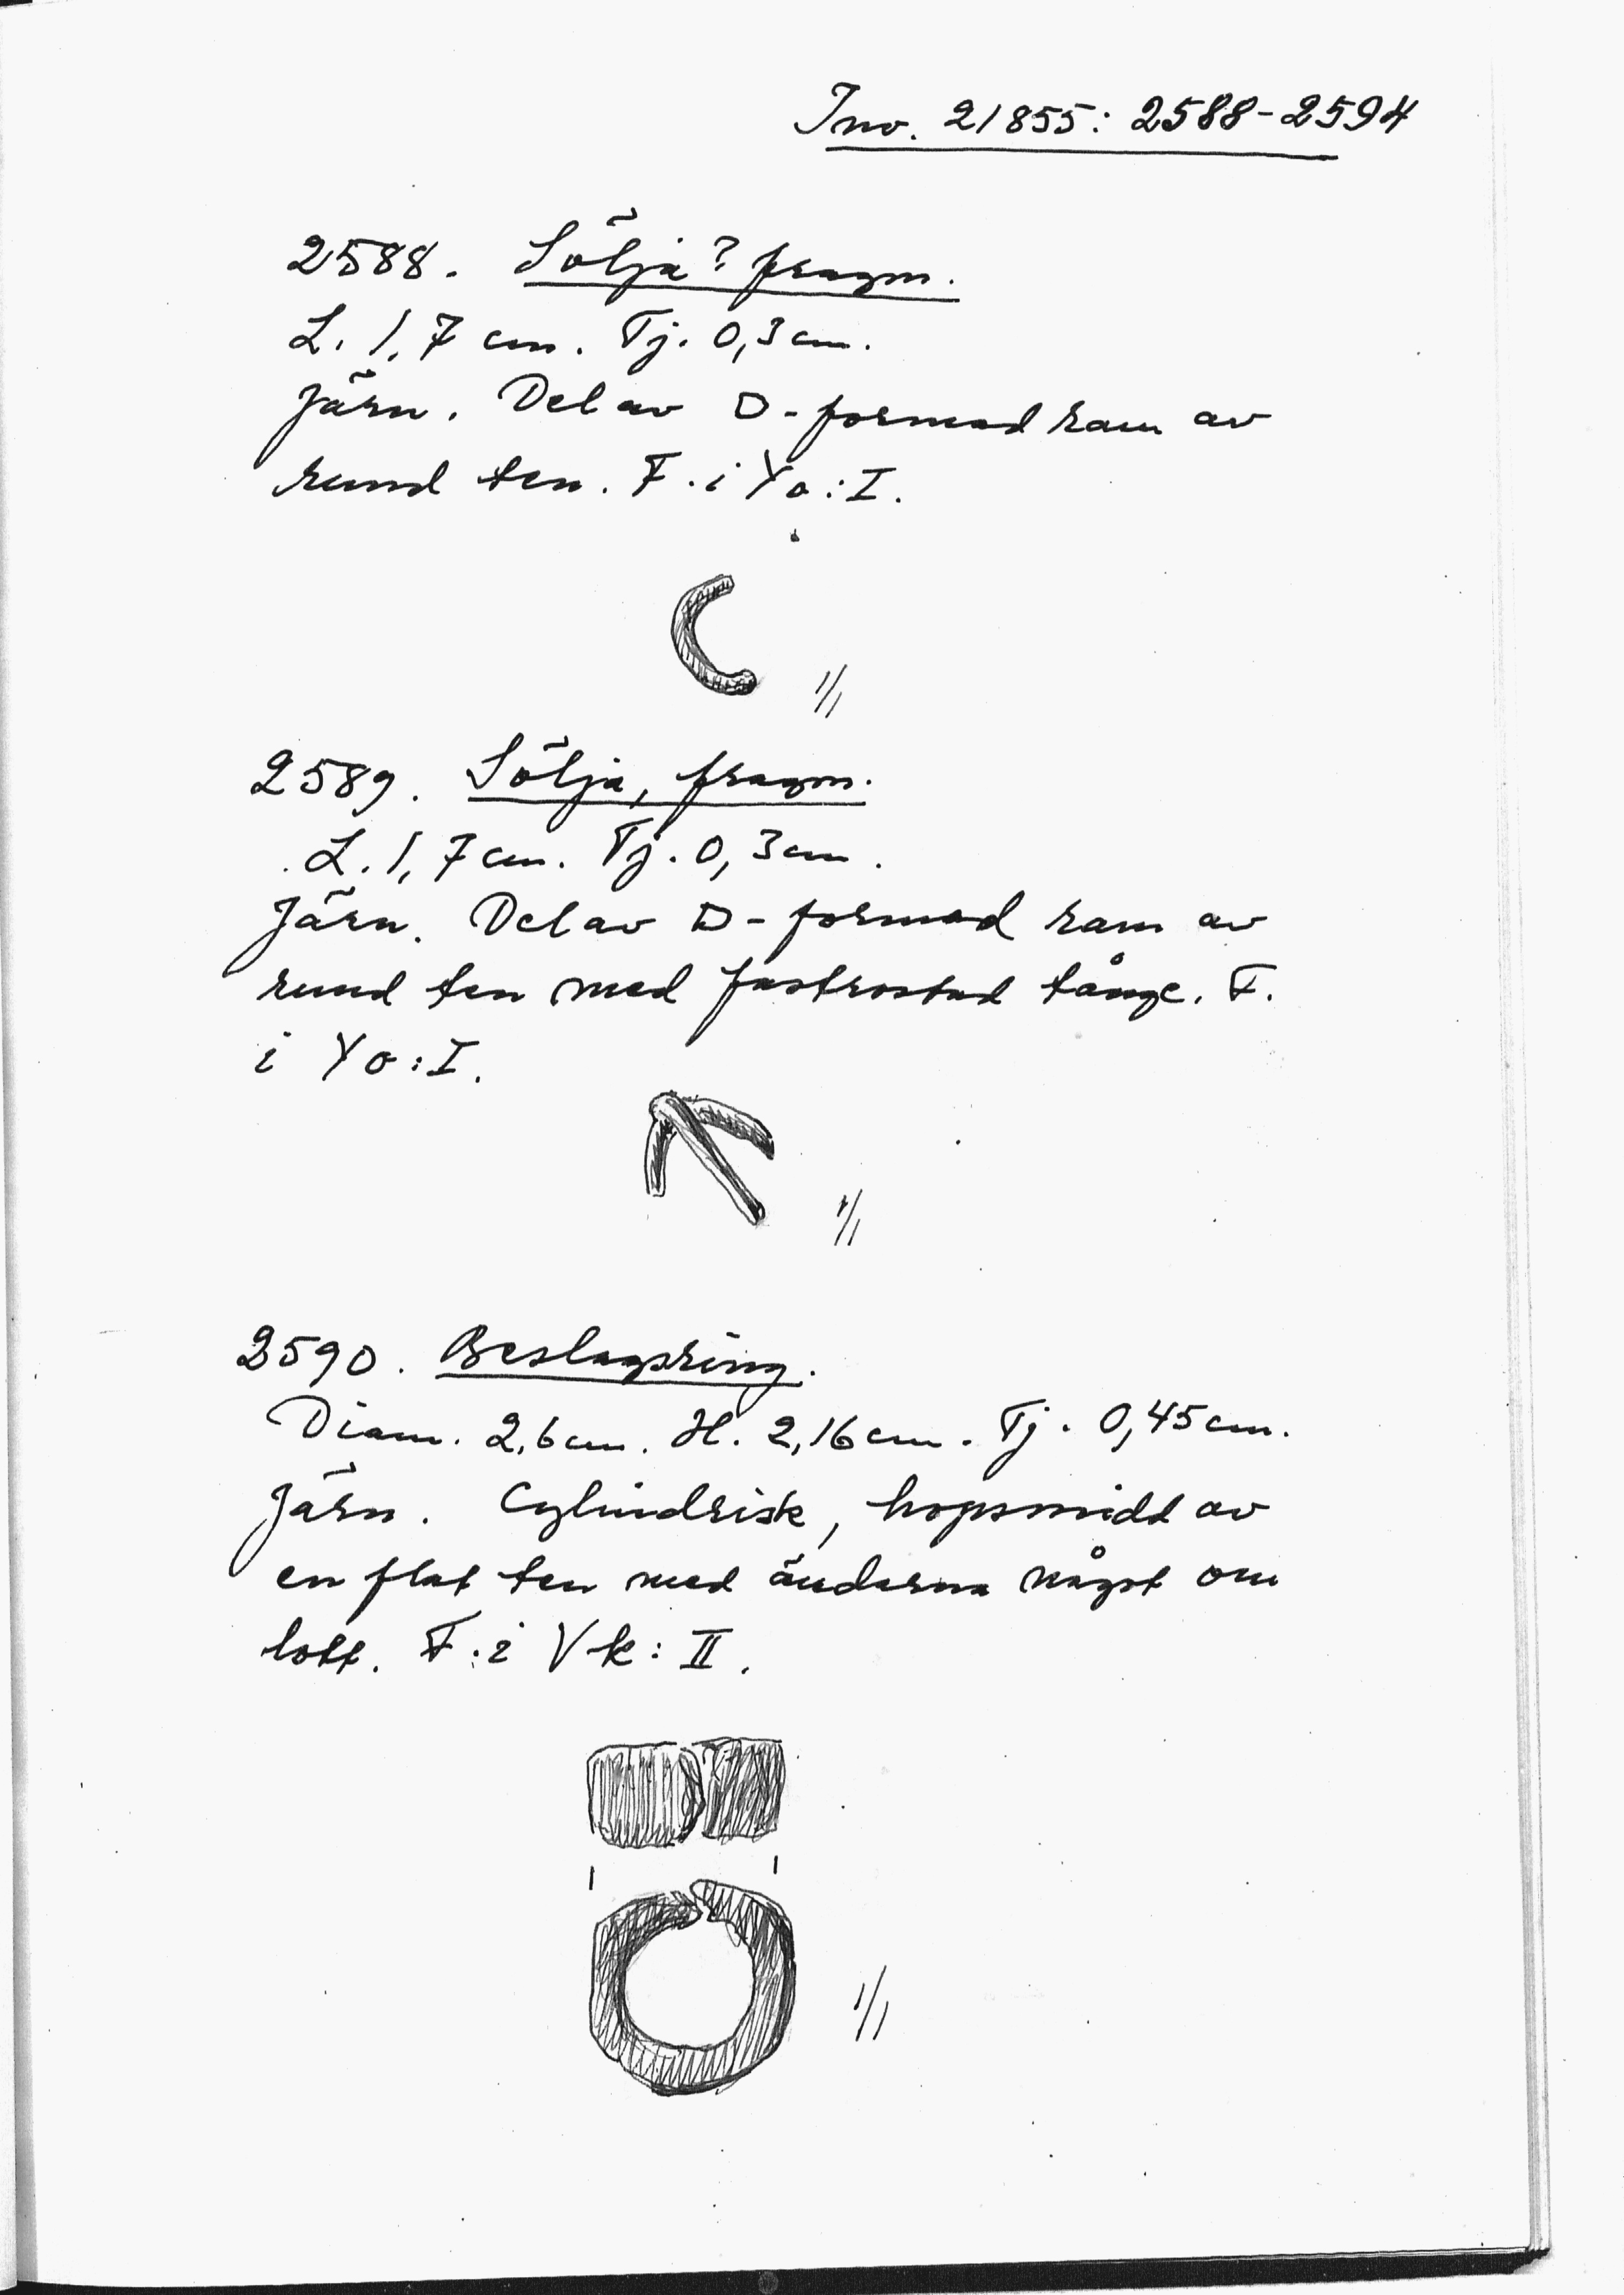 Inv. 21855: 2588-2594
2588. Sölja? fragm.
L. 1,7 cm. Tj. 0,3 cm.
Järn. Del av D-formad ram av
rund ten. F. i Yo:I.
1/1
2589. Sölja, fragm.
L. 1,7 cm. Tj. 0,3 cm.
Järn. Del av D-formad ram av
rund ten med fastrostad tånge. F.
i Yo:I.
1/1
2590. Beslagsring.
Diam. 2,6 cm. H. 2,16 cm. Tj. 0,45 cm.
Järn. Cylindrisk, hopsmidd av
en flat ten med ändarna något om
lott. F. i Vk: II.
1/1